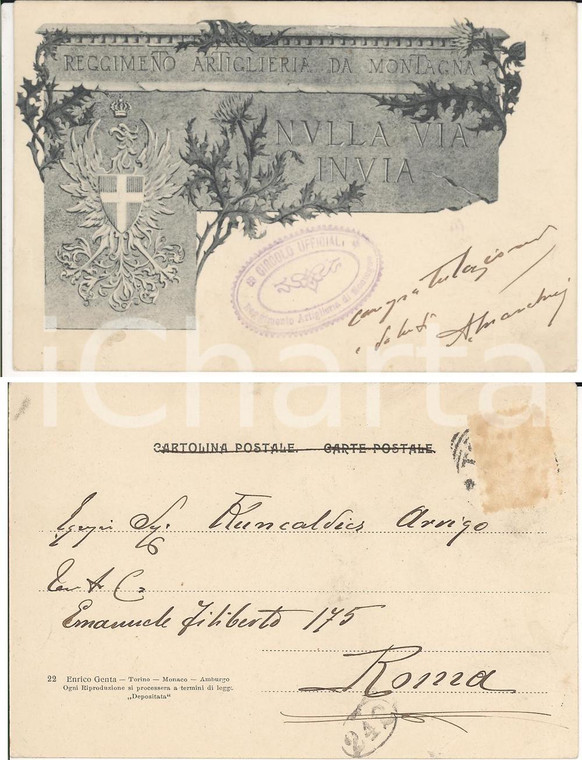 REGGIMENTO ARTIGLIERIA DA MONTAGNA
NVLLA VIA
INVIA
CIRCOLO UFFICIALI
Reggimento Artiglieria di Montagna
congratulazioni
e saluti
iCharta
CARTOLINA POSTALE. — CARTE POSTALE.
Sig.
Arrigo
Emanuele Filiberto 175
Roma
22 Enrico Genta — Torino — Monaco — Amburgo
Ogni Riproduzione si processera a termini di legge
„Depositata“